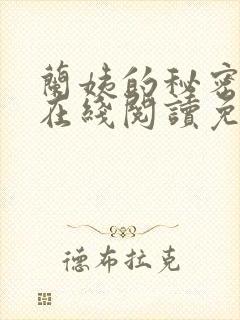 蘭姨的秘密
在綫閱讀免
德布拉克